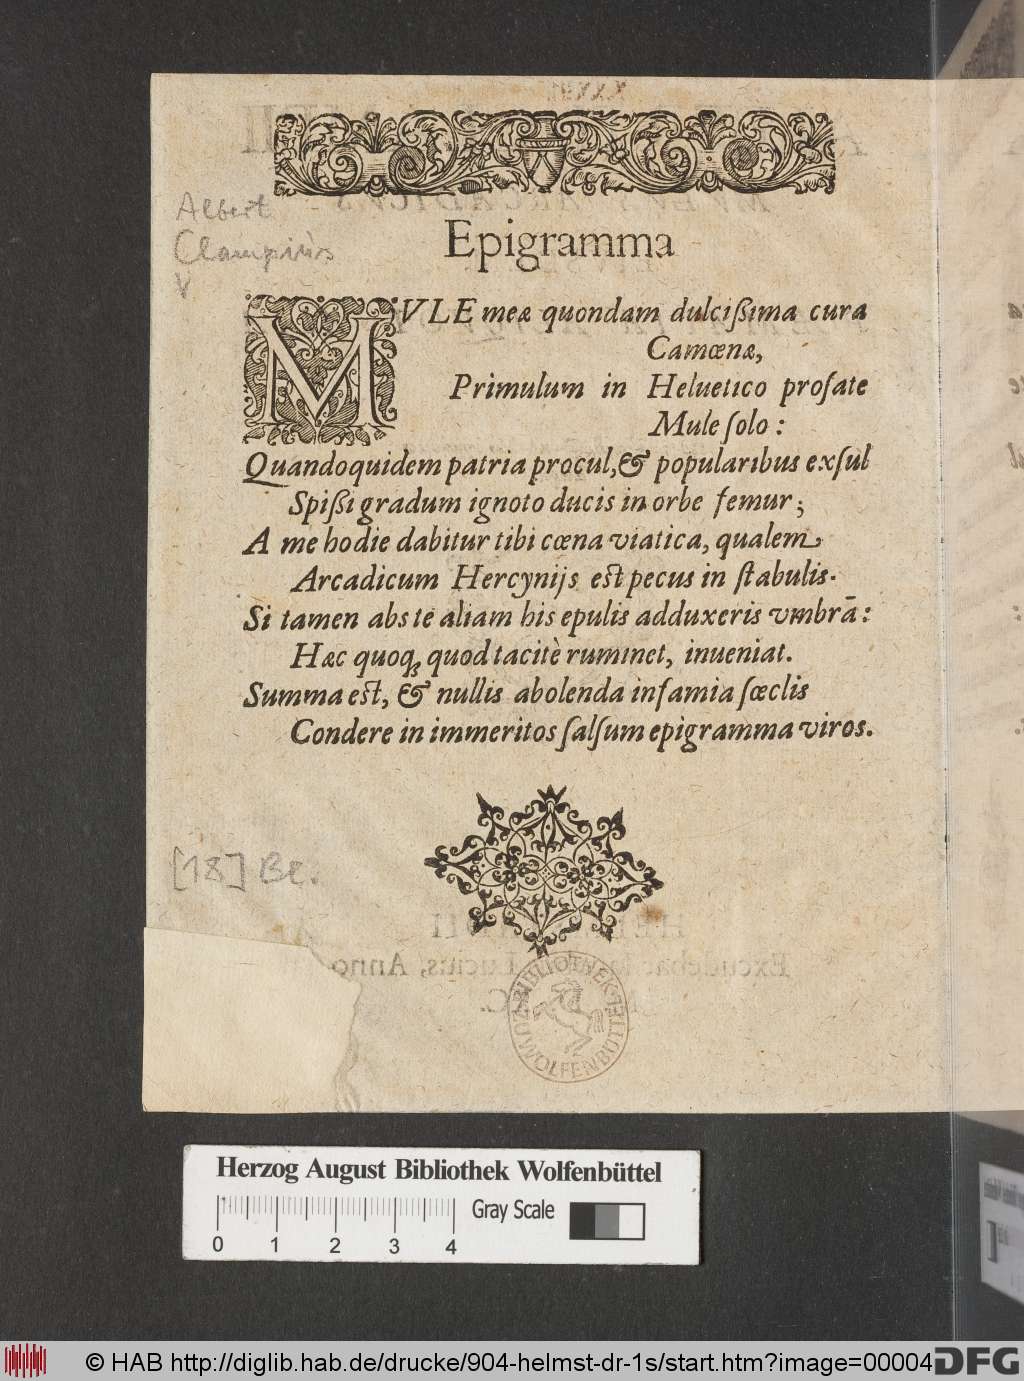 Albert
Epigramma
MVLE meæ quondam dulcißima cura
Camœnæ,
Primulum in Heluetico prosate
Mule solo:
Quandoquidem patria procul, & popularibus exſul
Spißi gradum ignoto ducis in orbe femur;
A me hodie dabitur tibi cœna viatica, qualem
Arcadicum Hercynijs est pecus in stabulis.
Si tamen abs te aliam his epulis adduxeris vmbrā:
Hæc quoq; quod tacitè ruminet, inueniat.
Summa est, & nullis abolenda infamia sœclis
Condere in immeritos salsum epigramma viros.
[18] Bl.
BIBLIOTHEK
ZU WOLFENBÜTTEL
Herzog August Bibliothek Wolfenbüttel
0 1 2 3 4
Gray Scale
© HAB http://diglib.hab.de/drucke/904-helmst-dr-1s/start.htm?image=00004
DFG